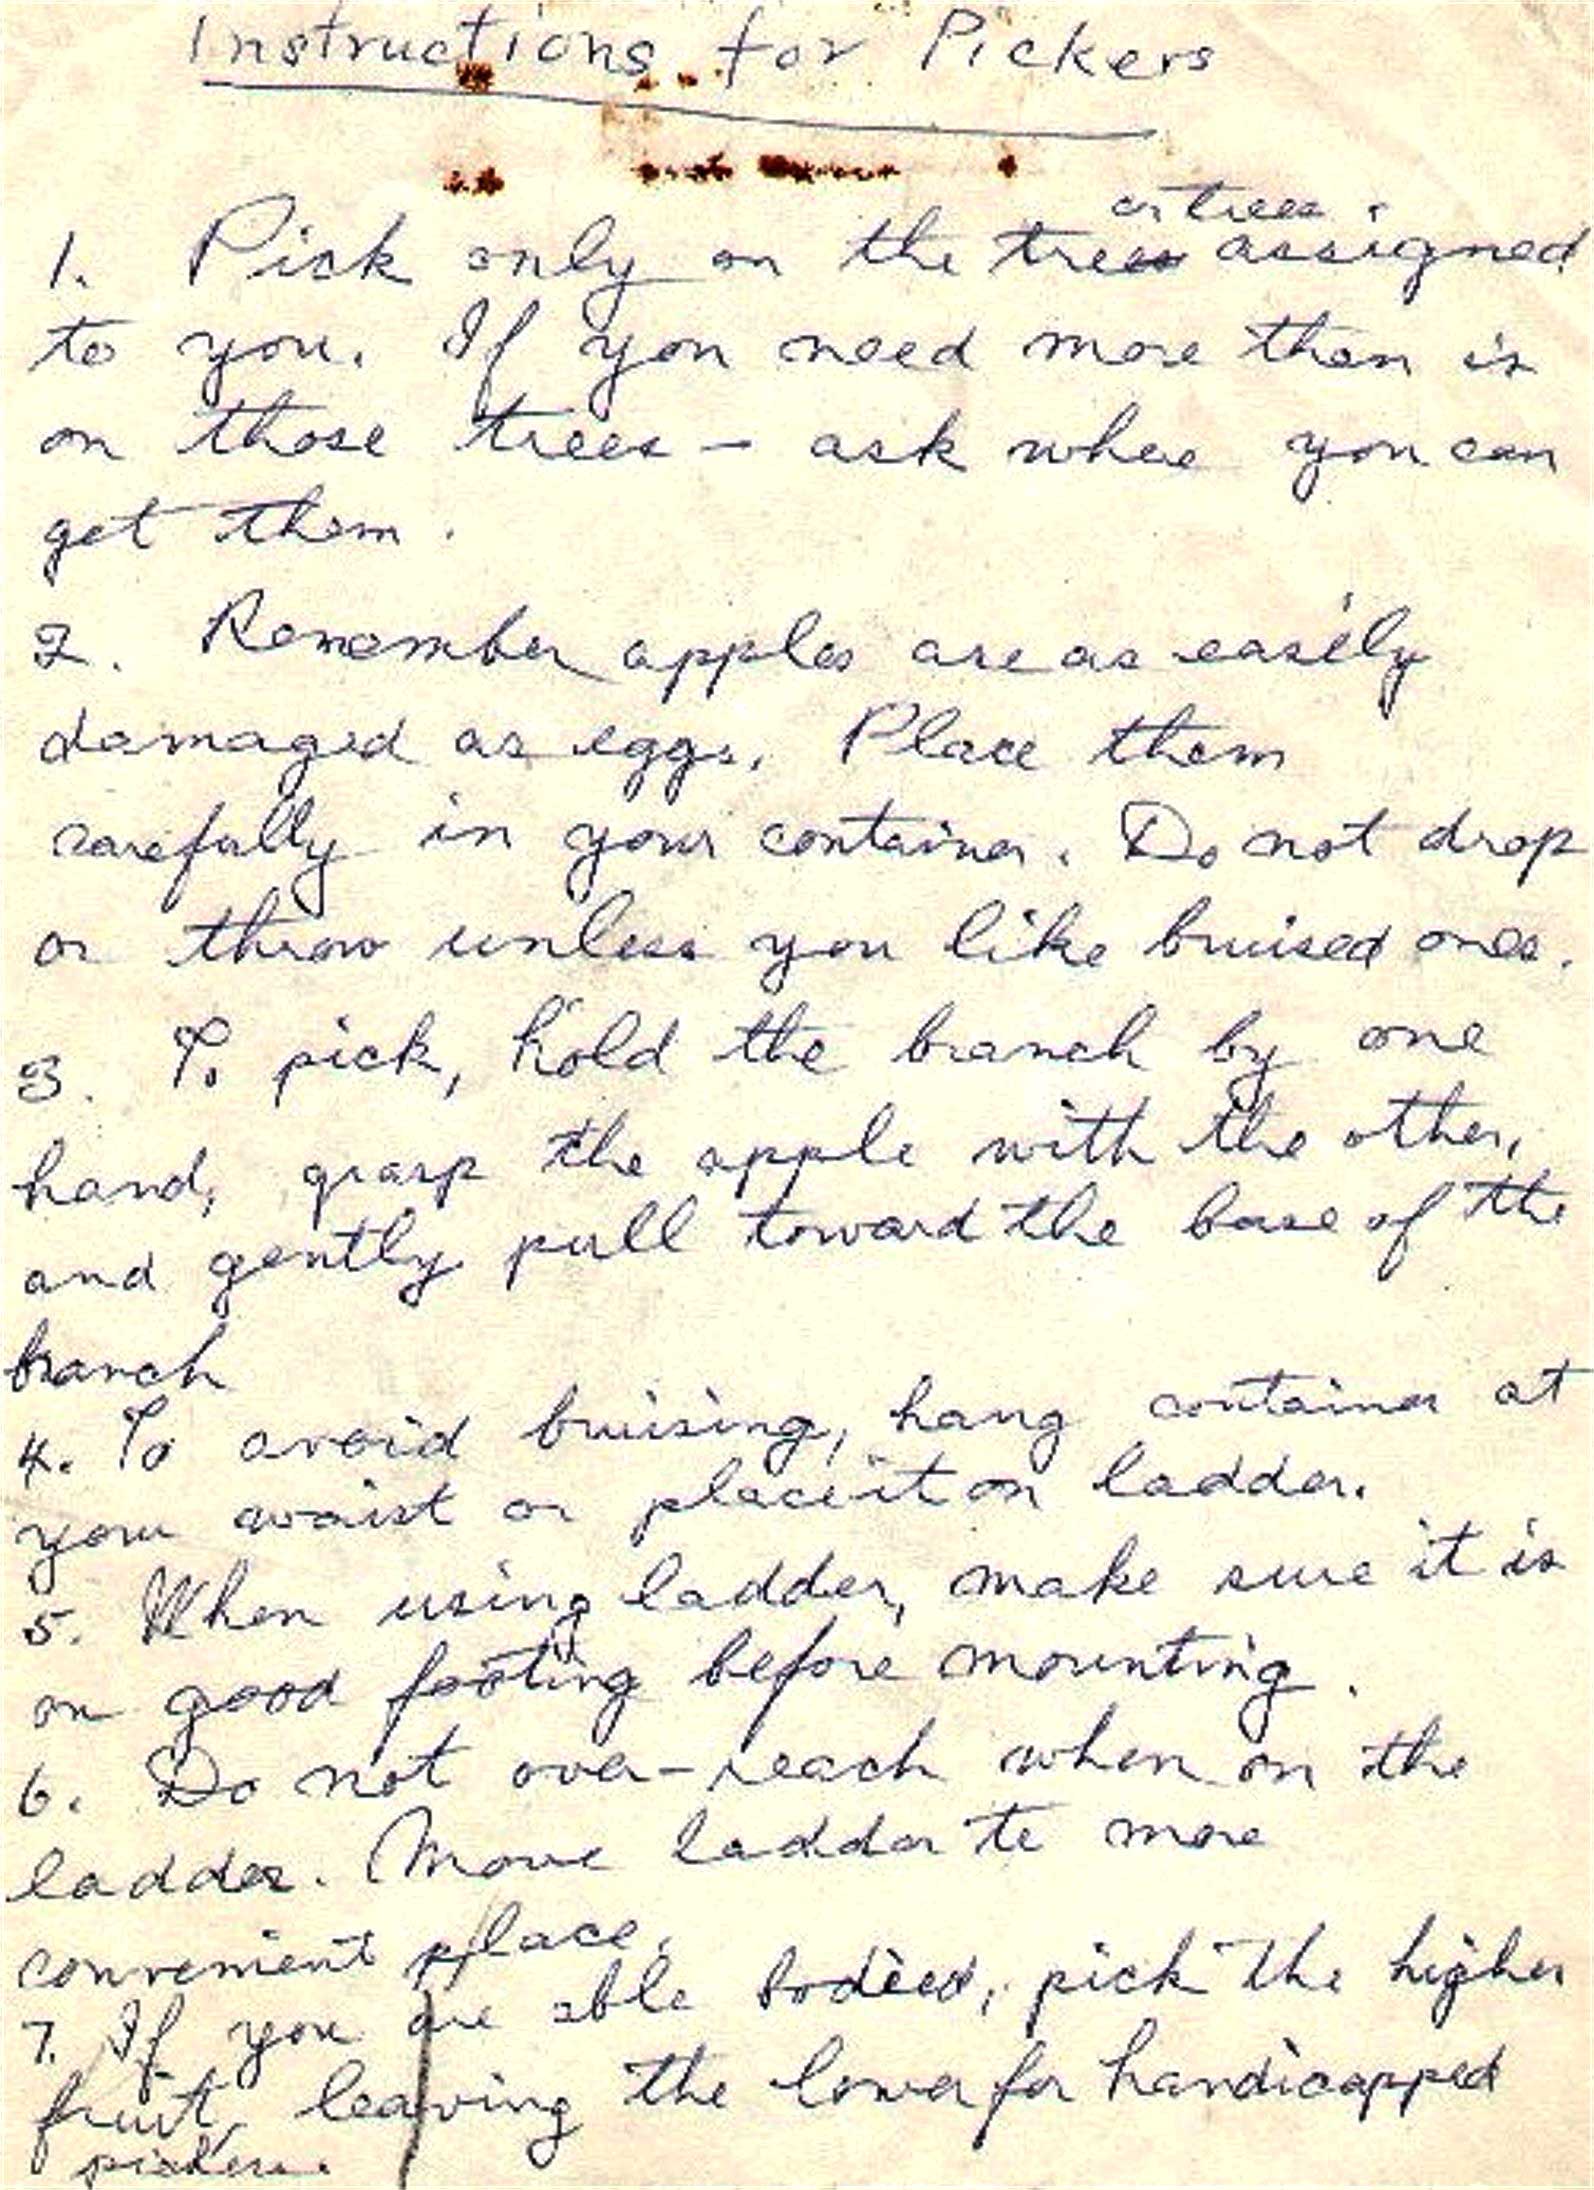 Instructions for Pickers
1. Pick only on the tree or trees assigned
to you. If you need more than is
on those trees - ask where you can
get them.
2. Remember apples are as easily
damaged as eggs. Place them
carefully in your container. Do not drop
or throw unless you like bruised ones.
3. To pick, hold the branch by one
hand, grasp the apple with the other,
and gently pull toward the base of the
branch
4. To avoid bruising, hang container at
your waist or place it on ladder.
5. When using ladder, make sure it is
on good footing before mounting.
6. Do not over-reach when on the
ladder. Move ladder to more
convenient place.
7. If you are able bodied, pick the higher
fruit, leaving the lower for handicapped
pickers.